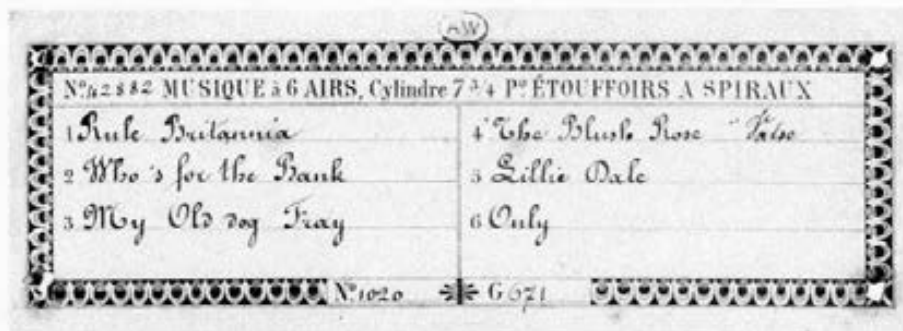 AW
Nº 42882 MUSIQUE à 6 AIRS, Cylindre 7 3/4 Pº ÉTOUFFOIRS A SPIRAUX
1 Rule Britannia
2 Who's for the Bank
3 My Old dog Tray
4 The Blush Rose Valse
5 Lillie Dale
6 Only
Nº 1020 G 671